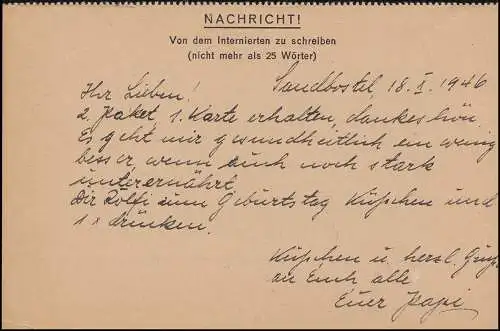 NACHRICHT!
Von dem Internierten zu schreiben
(nicht mehr als 25 Wörter)
Sandbostel, 18. I. 1946
Ihr Lieben!
2. Paket, 1. Karte erhalten, dankeschön.
Es geht mir gesundheitlich ein wenig
besser, wenn auch noch stark
unterernährt.
Dir Rolfi zum Geburtstag Küßchen und
1 x drücken.
Küßchen u. herzl. Grüße
an Euch alle
Euer Papi